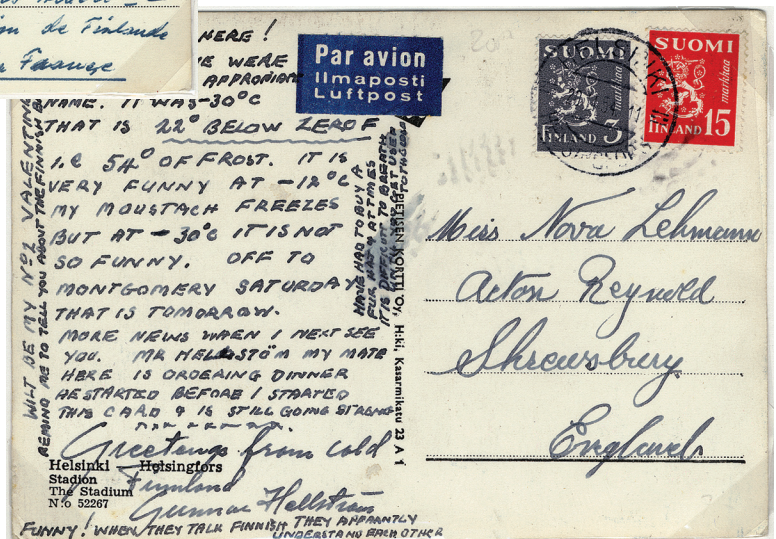 on de Finlande
HERE!
WE WERE
APPROPRIATE
NAME. IT WAS -30°C
THAT IS 22° BELOW ZERO F
I.E 54° OF FROST. IT IS
VERY FUNNY AT -12°C
MY MOUSTACH FREEZES
BUT AT -30°C IT IS NOT
SO FUNNY. OFF TO
MONTGOMERY SATURDAY
THAT IS TOMORROW.
MORE NEWS WHEN I NEXT SEE
YOU. MR HELLSTÖM MY MATE
HERE IS ORDERING DINNER
HE STARTED BEFORE I STARTED
THIS CARD & IS STILL GOING STRONG
Greetings from cold
Finnland
Gunnar Hellström
FUNNY! WHEN THEY TALK FINNISH THEY APPARANTLY
UNDERSTAND EACH OTHER
WILT BE MY No2 VALENTINE
REMIND ME TO TELL YOU ABOUT THE FINNISH
HAVE HAD TO BUY A
FUR HAT & AT TIMES
IT IS DIFFICULT TO BREATH
UNTIL YOU GET USED
TO THE COLD
Helsinki Helsingfors
Stadion
The Stadium
N:o 52267
KORTTI O.Y. H:ki, Kasarmikatu 23 A 1
Par avion
Ilmaposti
Luftpost
SUOMI
markkaa
FINLAND 3
SUOMI
markkaa
FINLAND 15
HELSINKI
Miss Nova Lehmann
Acton Reynold
Shrewsbury
England